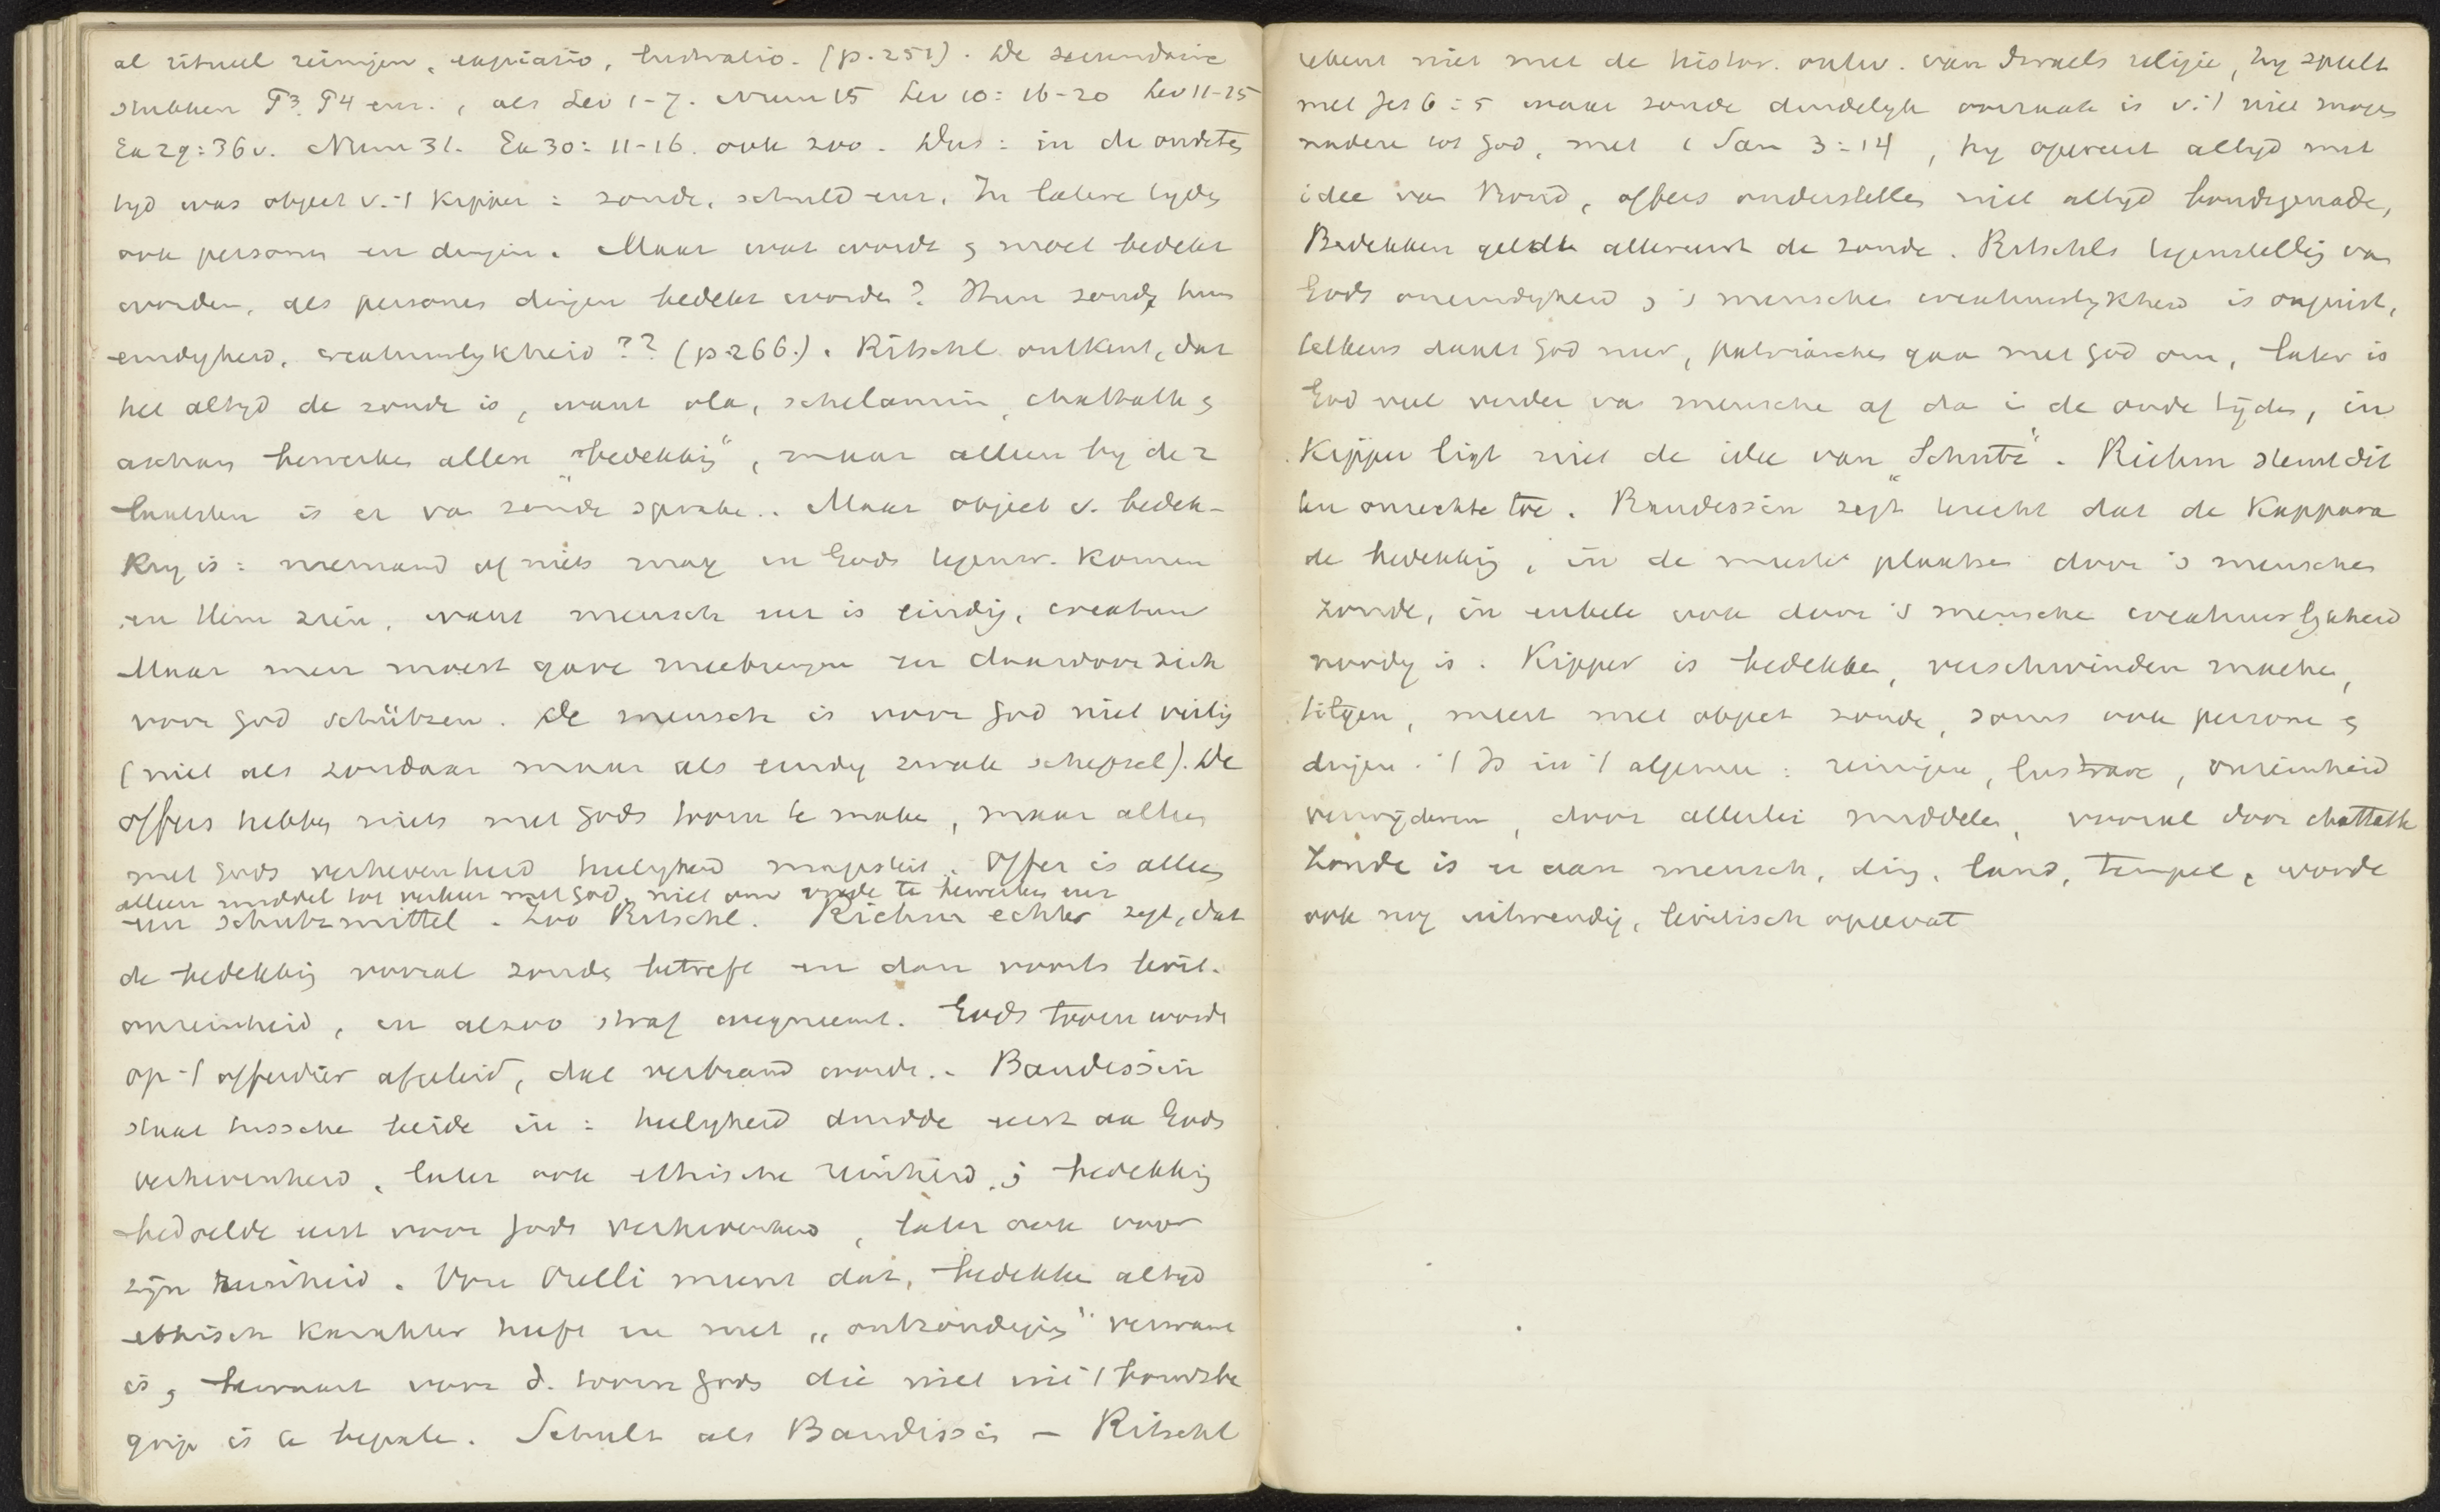 al ritueel reinigen, expiatio, lustratio. (p. 251). De secundaire
stukken P3. P4 enz., als Lev 1-7. Num 15 Lev 10: 16-20 Lev 11-15
Ex 29:36v. Num 31. Ex 30: 11-16. ook zoo. Dus: in de oudste
tyd was object v. 't Kipper: zonde, schuld enz. In latere tyden
ook personen en dingen. Maar wat wordt en moet bedekt
worden, als personen dingen bedekt worden? Hun zonde hun
eindigheid, creatuurlykheid?? (p 266.). Ritschl ontkent, dat
het altyd de zonde is, want ola, schelamim, chattath en
ascham bewerken allen "bedekking", maar alleen by de 2
laatsten is er van zonde sprake.. Maar object v. bedek-
king is: niemand of niets mag in Gods tegenw. komen
en Hem zien, want mensch enz is eindig, creatuur
Maar men moest gave meebrengen en daardoor zich
voor God schützen. De mensch is voor God niet veilig
(niet als zondaar maar als eindig zwak schepsel). De
offers hebben niets met Gods toorn te maken, maar alleen
met Gods verhevenheid heiligheid majesteit. Offer is alleen
alleen middel tot verkeer met God, niet om vrede te bewerken enz
een schutzmittel. Zoo Ritschl. Riehm echter zegt, dat
de bedekking vooral zonde betreft en dan voorts levit.
onreinheid, en alzoo straf wegneemt. Gods toorn wordt
op 't offerdier afgeleid, dat verbrand wordt. - Baudissin
staat tusschen beide in: heiligheid duidde eerst aan Gods
verhevenheid, later ook ethische reinheid; bedekking
bedoelde eerst voor Gods verhevenheid, later ook voor
zijn reinheid. Von Orelli meent dat, bedekken altyd
ethisch karakter heeft en met „ontzondiging" verwant
is, bewaart voor d. toorn Gods die niet uit 't bondsbe
grip is te bepalen. Schultz als Baudissin – Ritschl
rekent niet met de histor. ontw. van Israels religie, hy speelt
met Jes 6:5 waar zonde duidelyk oorzaak is v. 't niet mogen
naderen tot God, met 1 Sam 3:14, hy opereert altyd met
idee van Bond, offers onderstellen niet altyd bondsgenade,
Bedekken geldt allereerst de zonde. Ritschls tegenstelling van
Gods oneindigheid en 's menschen creatuurlykheid is onjuist,
telkens daalt God neer, patriarchen gaan met God om, later is
God veel verder van menschen af dan in de oude tijden, in
Kipper ligt niet de idee van "Schutz". Riehm stemt dit
ten onrechte toe. Baudissin zegt terecht dat de Kappara
de bedekking, in de meeste plaatsen door 's menschen
zonde, in enkele ook door 's menschen creatuurlykheid
noodig is. Kipper is bedekken, verschwinden machen,
tilgen, meest met object zonde, soms ook personen en
dingen. 't Is in 't algemeen: reinigen, lustrare, onreinheid
verwijderen, door allerlei middelen, vooral door chattath
Zonde is er aan mensch, ding, land, tempel, wordt
ook nog uitwendig, levitisch opgevat